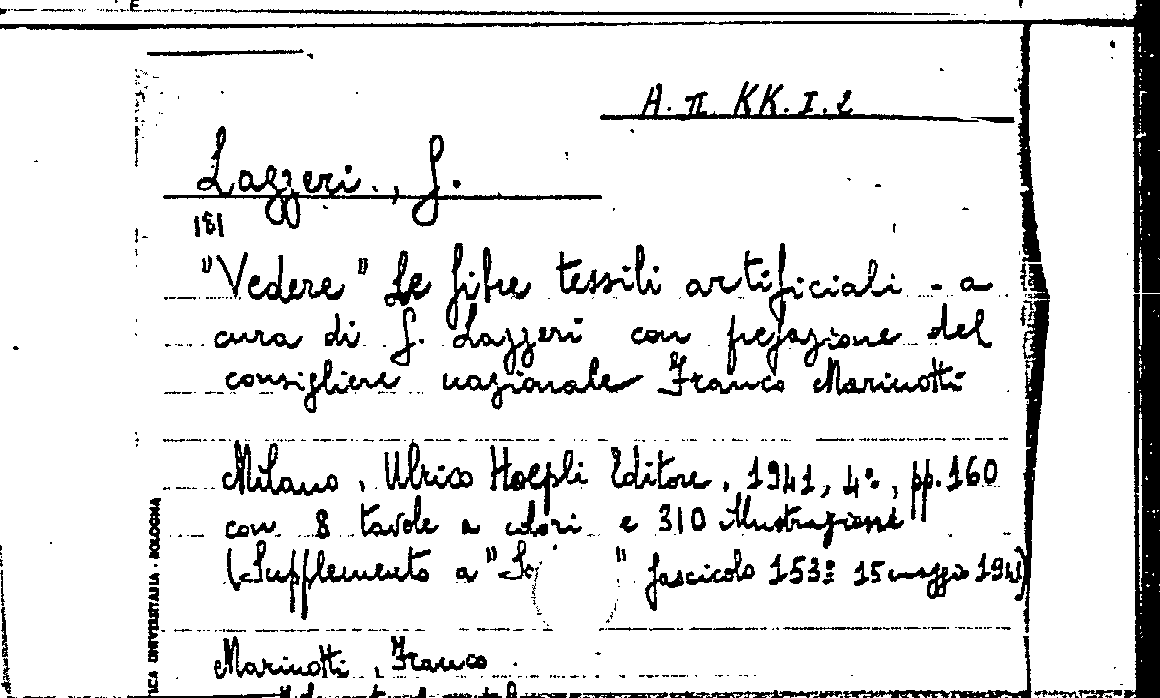 A. π. KK. I. 2
Lazzeri., G.
181
"Vedere" Le fibre tessili artificiali - a
cura di G. Lazzeri con prefazione del
consigliere nazionale Franco Marinotti
Milano, Ulrico Hoepli Editore, 1941, 4°, pp. 160
con 8 tavole a colori e 310 illustrazioni
(Supplemento a " " fascicolo 153º 15 maggio 1941)
Marinotti, Franco
ICA UNIVERSITARIA - BOLOGNA